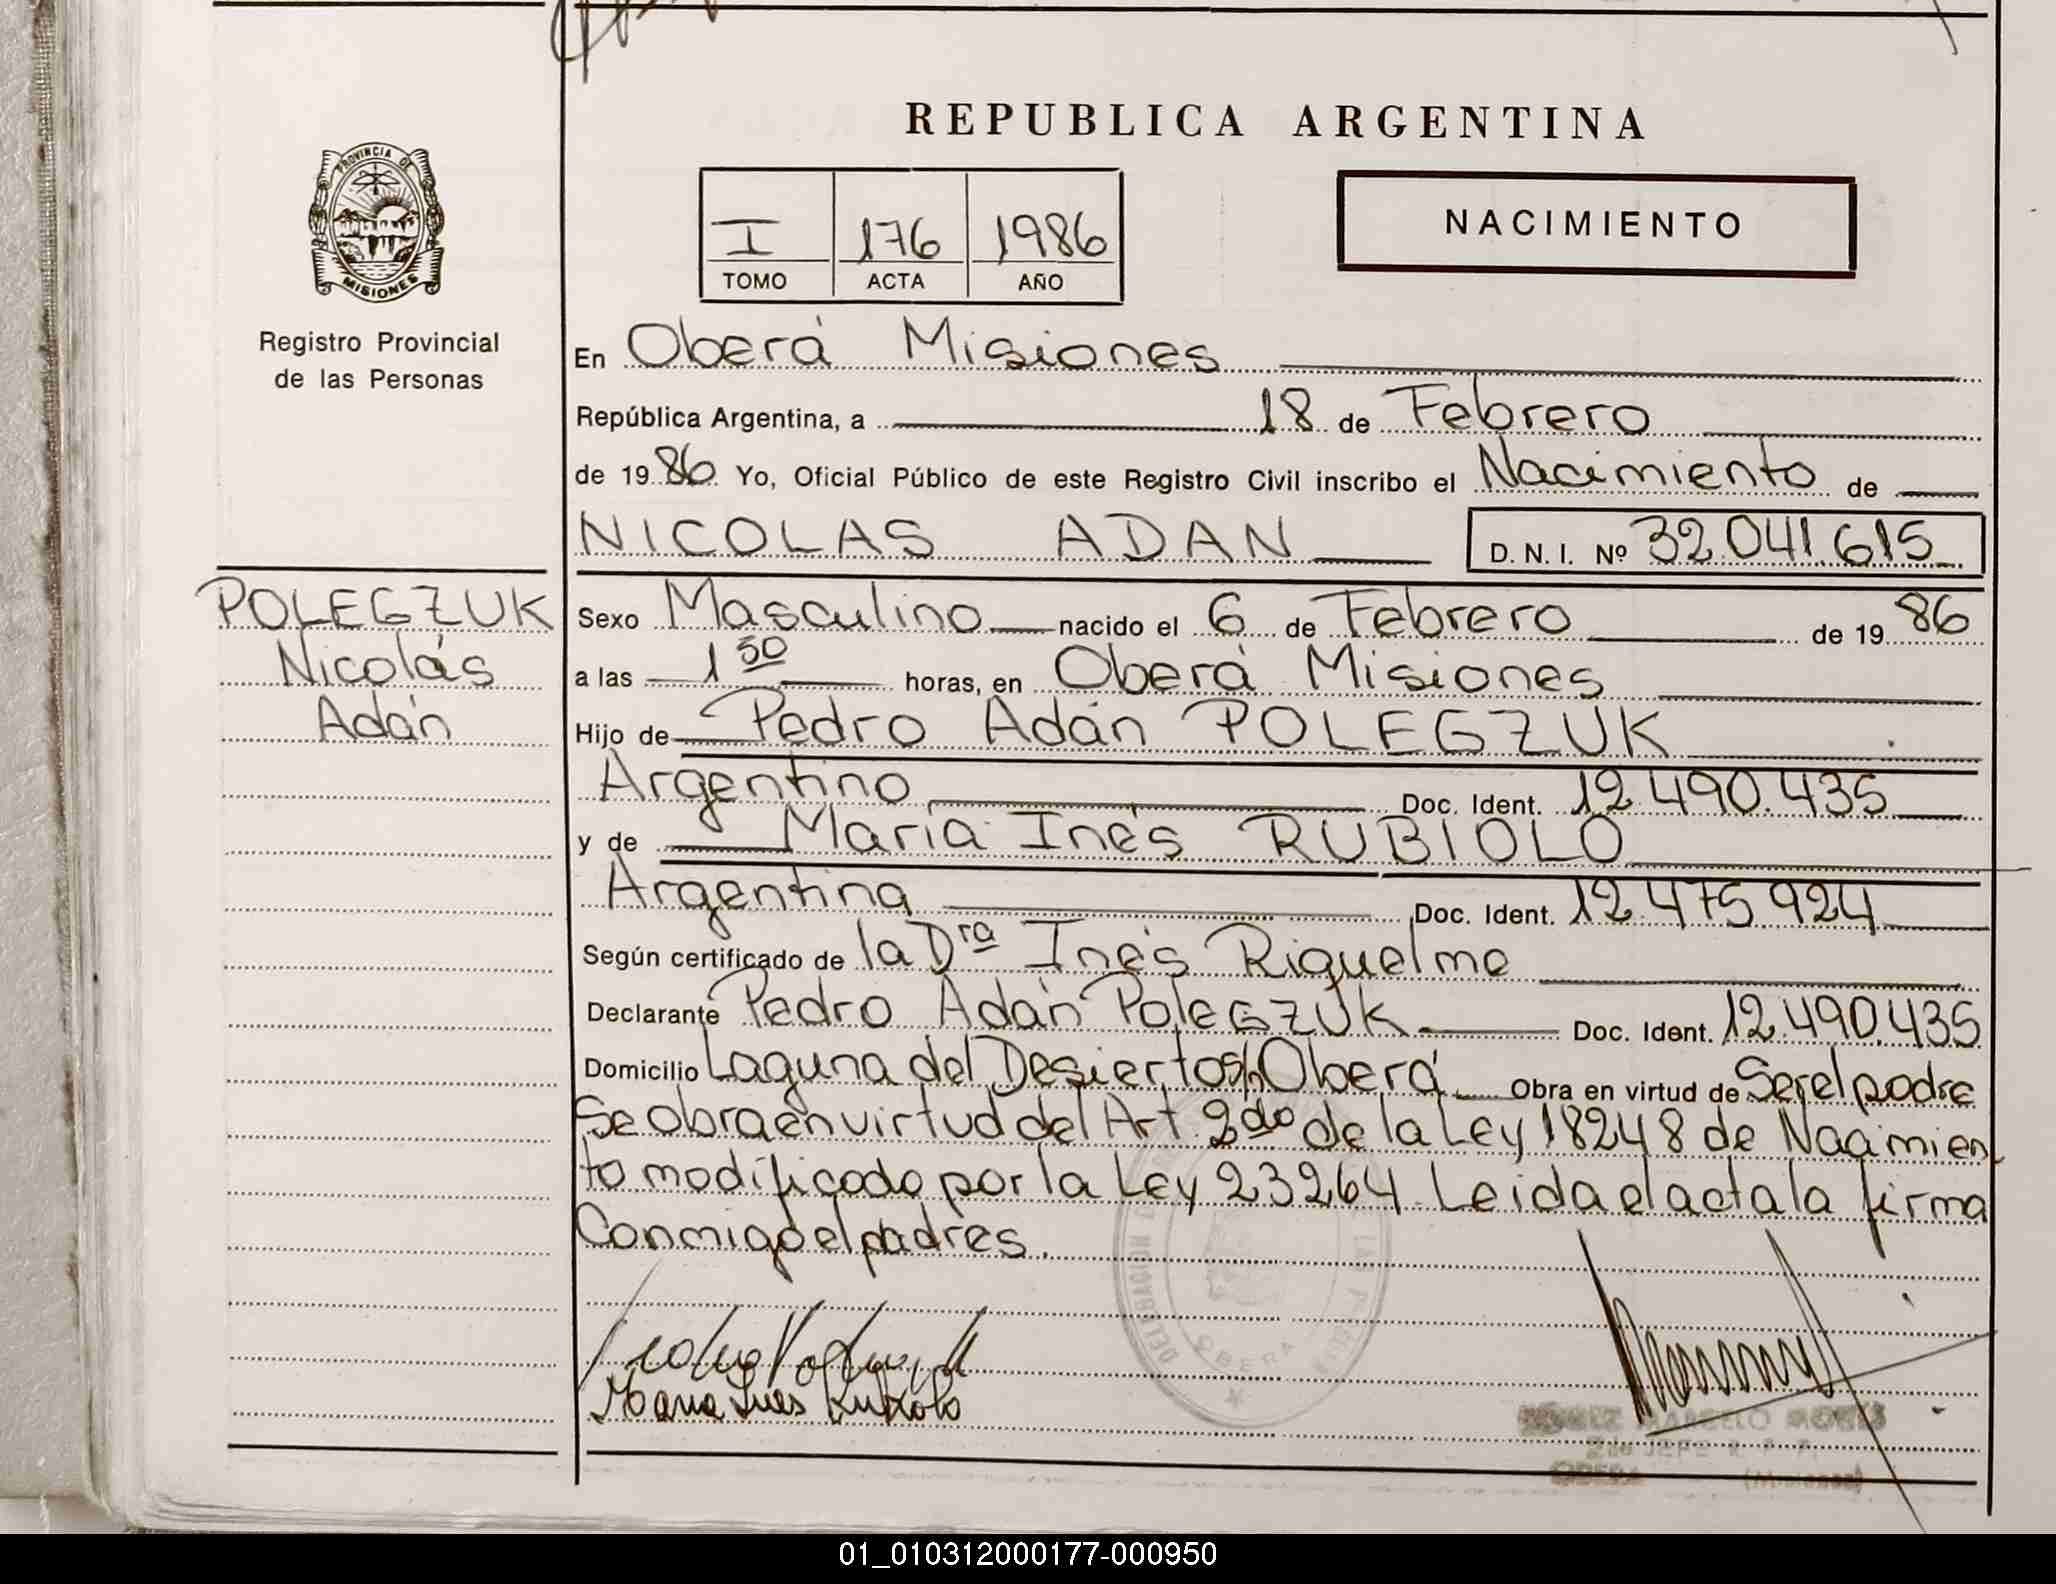 REPUBLICA ARGENTINA
PROVINCIA DE
MISIONES
Registro Provincial
de las Personas
I 176 1986
TOMO ACTA AÑO
NACIMIENTO
En Oberá Misiones
República Argentina, a 18 de Febrero
de 1986 Yo, Oficial Público de este Registro Civil inscribo el Nacimiento de
NICOLAS ADAN D. N. I. Nº 32.041.615
POLEGZUK
Nicolás
Adán
Sexo Masculino nacido el 6 de Febrero de 1986
a las 1 50 horas, en Oberá Misiones
Hijo de Pedro Adán POLEGZUK
Argentino Doc. Ident. 12.490.435
y de María Inés RUBIOLO
Argentina Doc. Ident. 12.475.924
Según certificado de la Dra Inés Riquelme
Declarante Pedro Adán POLEGZUK Doc. Ident. 12.490.435
Domicilio Laguna del Desierto s/n Oberá Obra en virtud de Ser el padre
Se obra en virtud del Art. 2do de la Ley 18248 de Nacimien
to modificado por la Ley 23264. Leida el acta la firma
Conmigo el padres.
DELEGACION
OBERA
Maria Ines Rubiolo
MARCELO
2do JEFE R. P. P.
OBERA (Misiones)
01_010312000177-000950